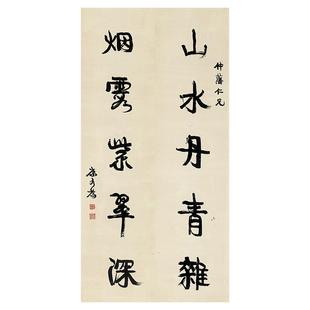 山水丹青雜
仲藩仁兄
烟霞紫翠深
康有為